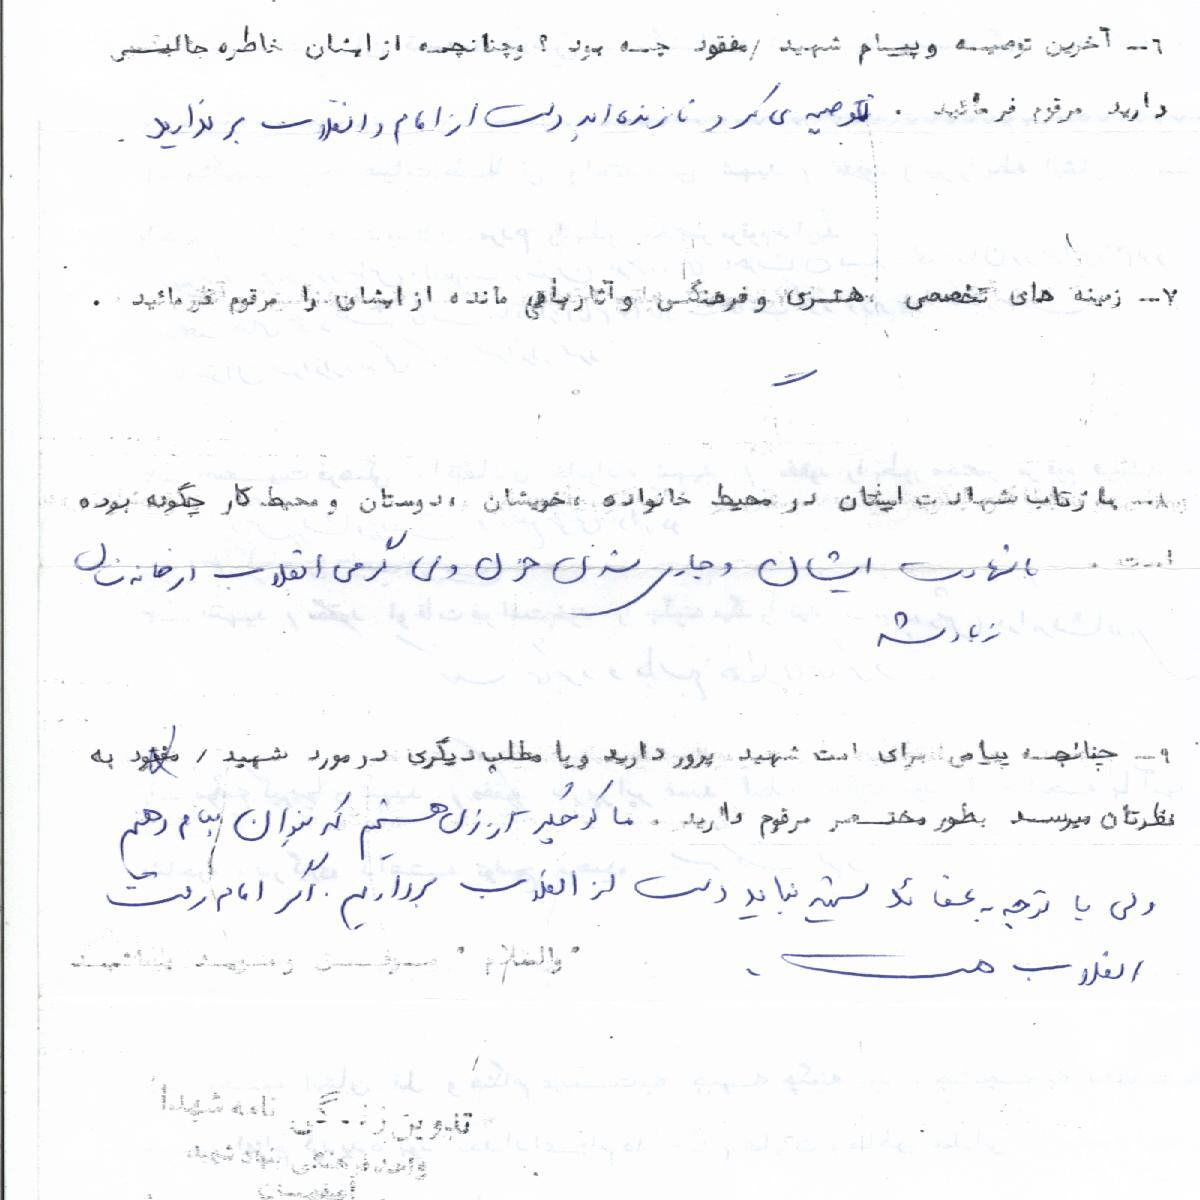 ٦- آخرین توصیه و پیام شهید / مفقود چه بود ؟ و چنانچه از ایشان خاطره جالبی
دارید مرقوم فرمائید . توصیه می کرد تا زنده اید دست از امام و انقلاب بر ندارید .
٧- زمینه های تخصصی ، هنری و فرهنگی و آثار باقی مانده از ایشان را مرقوم فرمائید .
-
٨- بازتاب شهادت ایشان در محیط خانواده ، خویشان ، دوستان و محیط کار چگونه بوده
است . با شهادت ایشان و جاری شدن خون وی گرمی انقلاب در خانه شان
زیاد شد
٩- چنانچه پیامی برای امت شهید پرور دارید و یا مطلب دیگری در مورد شهید / مفقود به
نظرتان میرسد بطور مختصر مرقوم دارید . ما کوچکتر از آن هستیم که بتوان پیام دهیم
ولی با توجه به عقائد نباید دست از انقلاب برداریم . اگر امام رفت
انقلاب هست .
" والسلام "